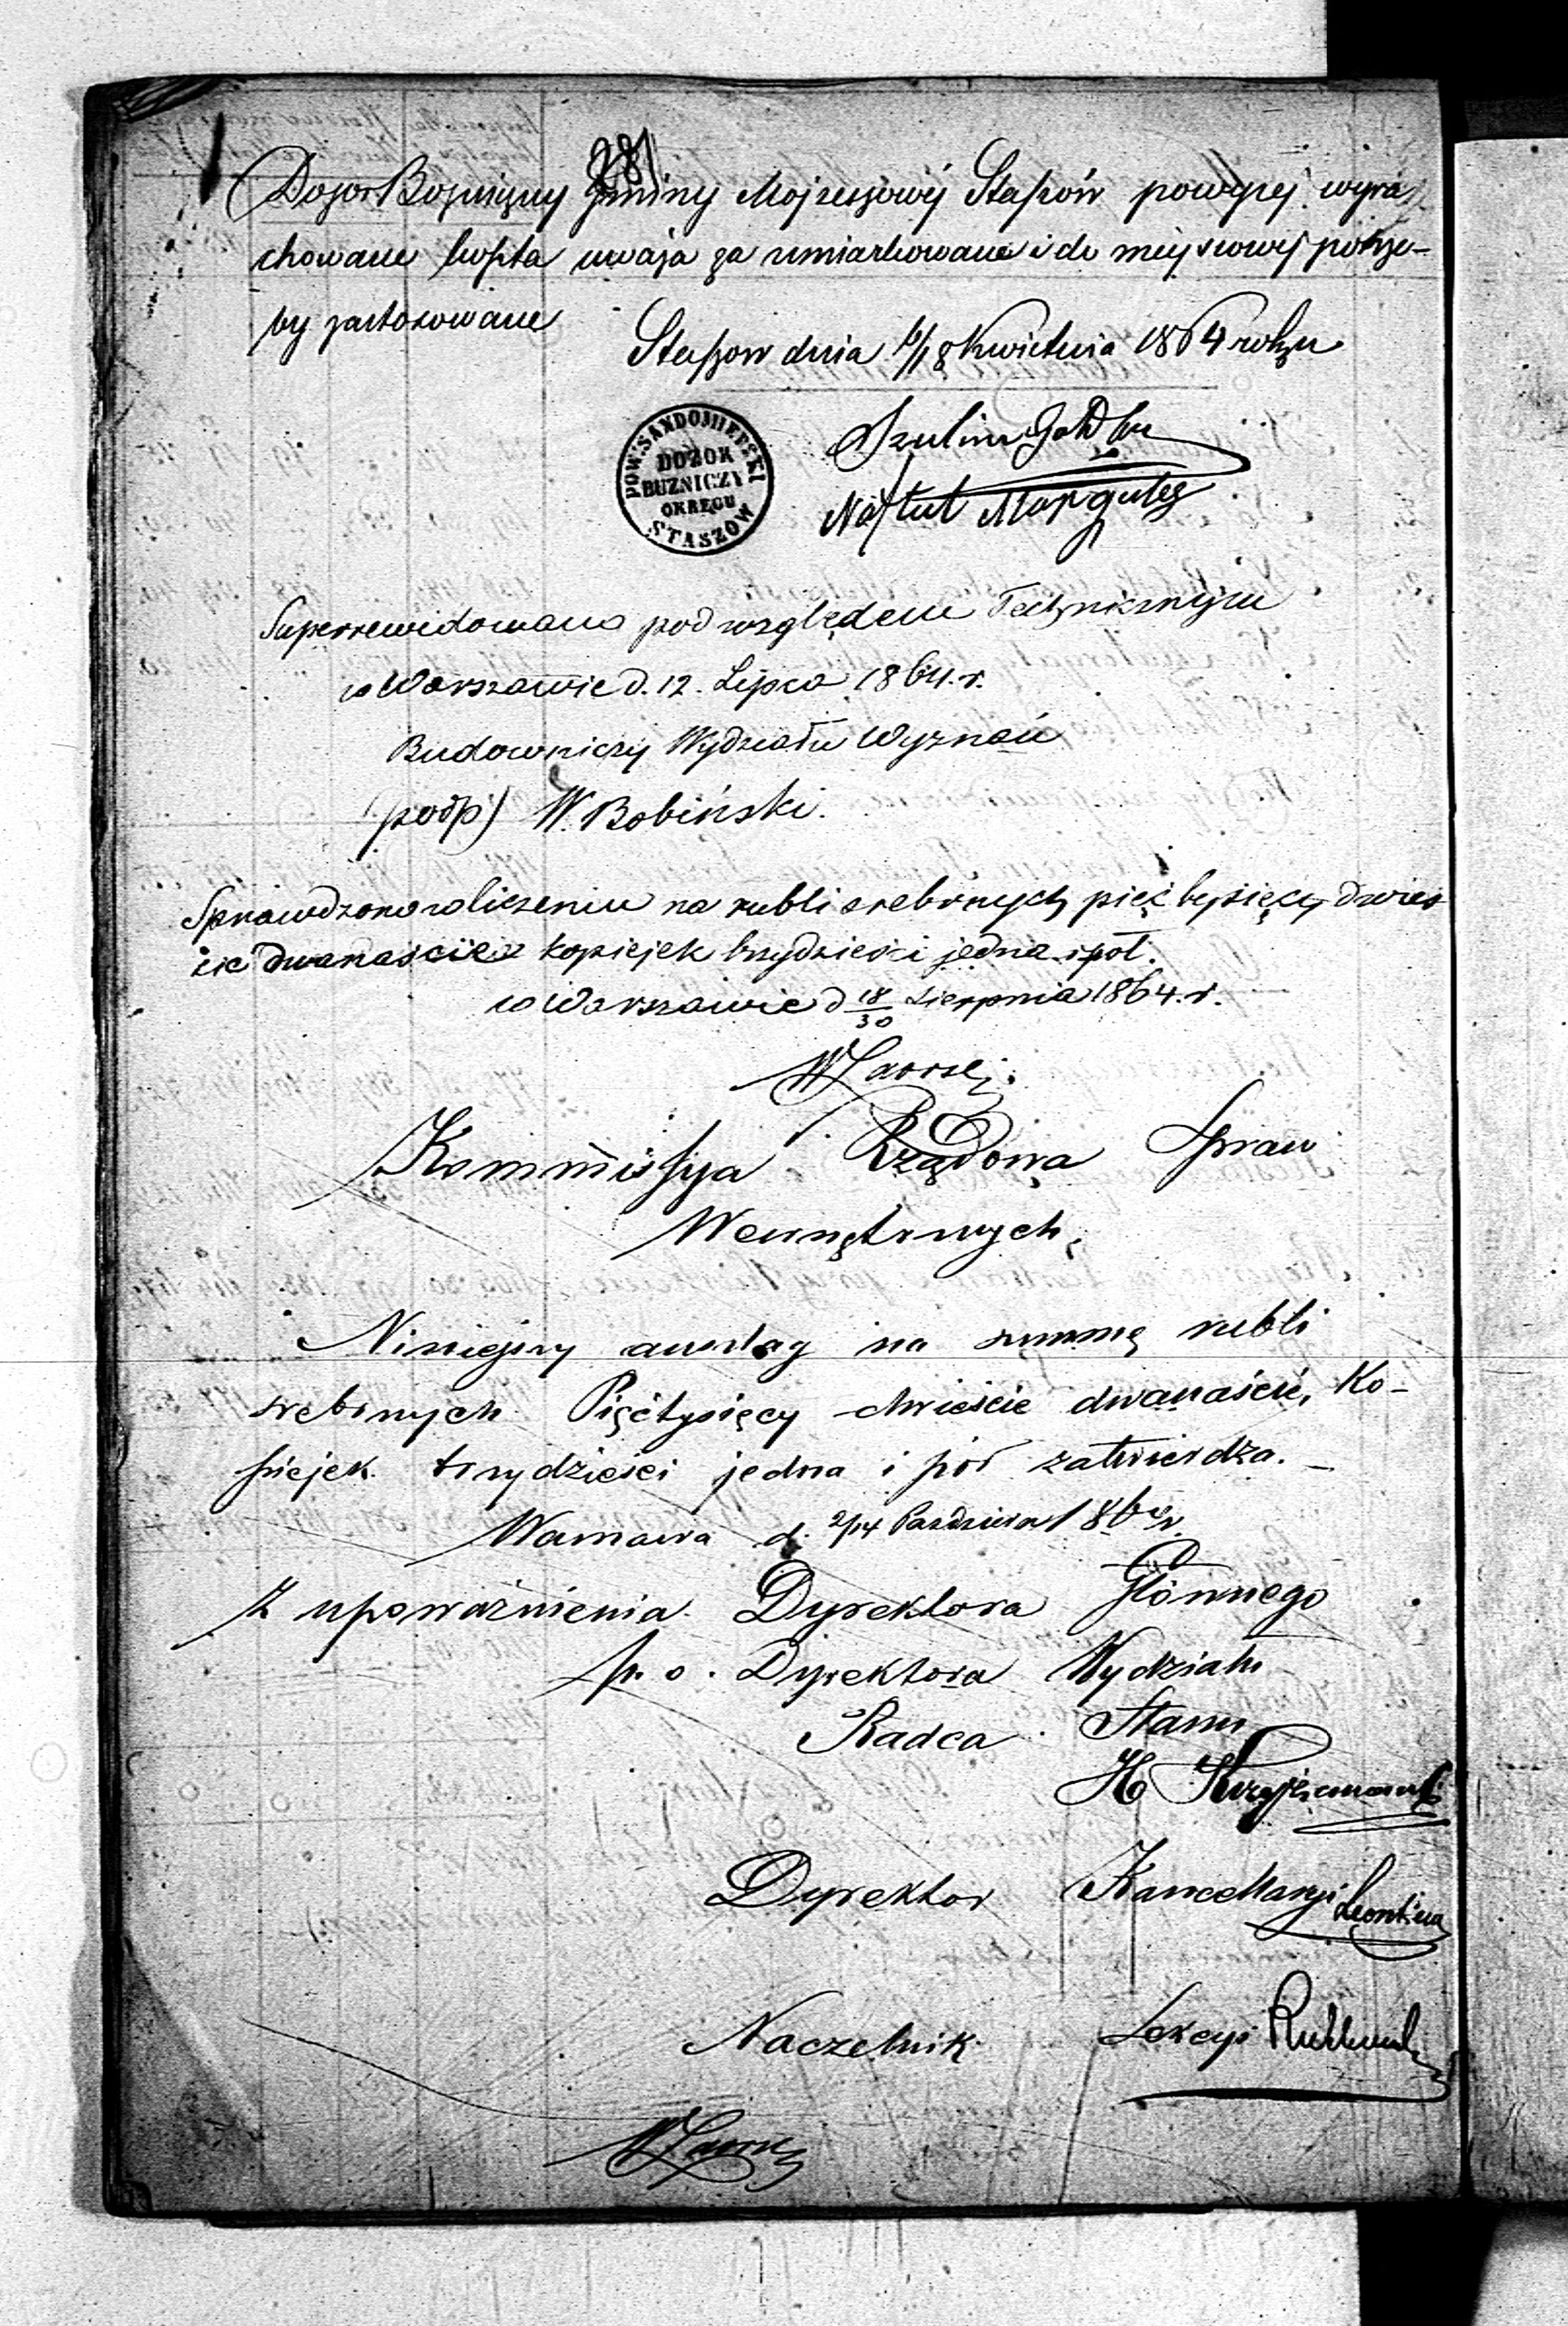 281
Dozor Bożniczny Gminy Mojżeszowéj Staszów powyżej wyra
chowane koszta uważa za umiarkowane i do miejscowej potrze-
by zastosowane
Staszow dnia 6/18 Kwietnia 1864 roku
POW: SANDOMIERSKI
DOZOR
BUZNICZY
OKRĘGU
STASZOW
Szulim
Margules
Superrewidowano pod względem Technicznym
w Warszawie d. 12. Lipca 1864. r.
Budowniczy Wydziału Wyznań
(podp) W. Bobiński.
Sprawdzono w liczeniu na rubli srebrnych pięć tysięcy dwieś
cie dwanaście kopiejek trzydzieści jedna i pół.
w Warszawie d 18/30 Sierpnia 1864. r.
Kommissya Rządowa Spraw
Wewnętrznych,
Niniejszy anszlag na summę rubli
srebrnych Pięć tysięcy dwieście dwanaście, Ko-
piejek trzydzieści jedna i pół zatwierdza. –
Warszawa d. 2/14 Październ 1864 r.
Z upoważnienia Dyrektora Głównego
p. o. Dyrektora Wydziału
Radca Stanu
H
Dyrektor Kancellaryi
Naczelnik Sekcyi